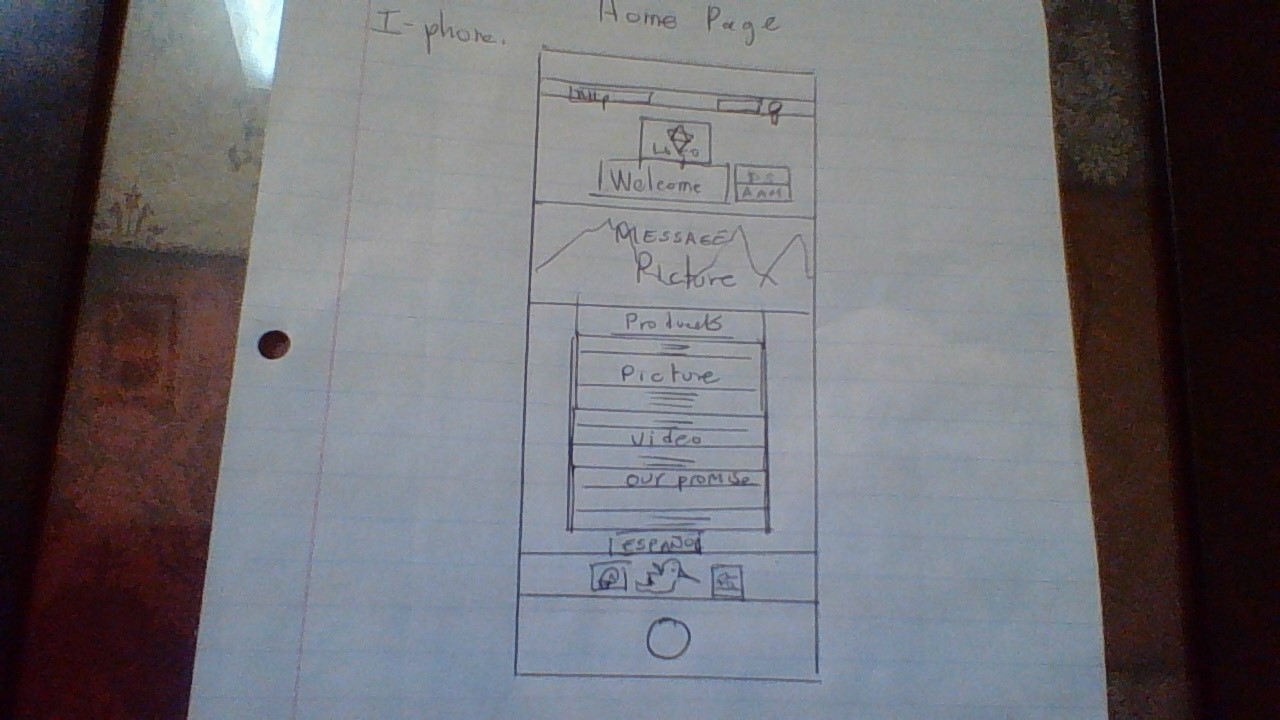 Home Page
I-phone.
LOGO
Welcome
MESSAGE
Picture
Products
Picture
video
our promise
ESPAÑOL